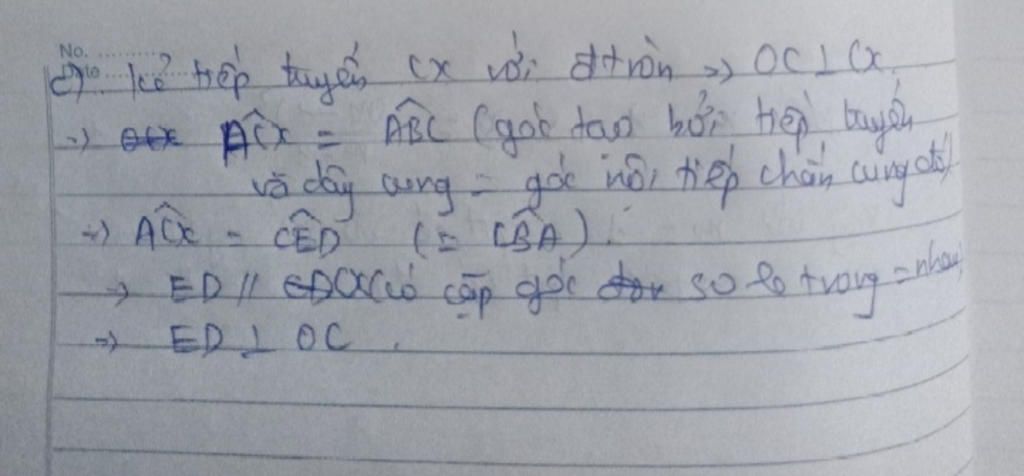 No.
Date
c) Kẻ tiếp tuyến Cx với đtròn => OC ⊥ Cx
=> ACx̂ = ABĈ (góc tạo bởi tiếp tuyến
và dây cung = góc nội tiếp chắn cung đó)
=> ACx̂ = CÊD (= CB̂A).
=> ED // Cx (có cặp góc so le trong = nhau)
=> ED ⊥ OC.